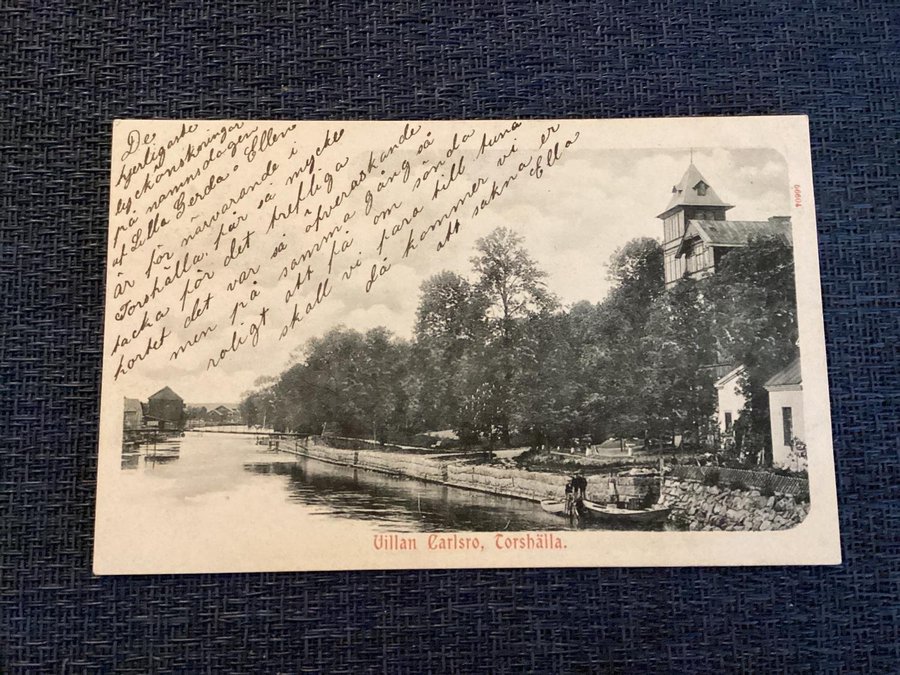 De
hjertligaste
lyckönskningar
på namnsdagen
af Lilla Gerda o Ellen
är för närvarande i
Torshälla. får så mycke
tacka för det trefliga
kortet det var så öfveraskande
men på samma gång så
roligt att få om sönda
skall vi fara till tuna
då kommer vi
att sakna er
Ella
40999
Villan Carlsro, Torshälla.